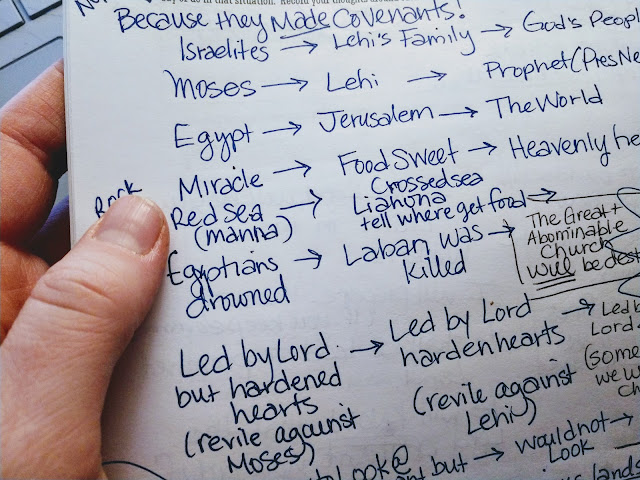 day or do in that situation. Record your thoughts
Because they Made Covenants!
Israelites → Lehi's Family → God's Peopl
Moses → Lehi → Prophet (Pres Ne
Egypt → Jerusalem → The World
Miracle → Food Sweet → Heavenly he
Crossed sea
Red Sea → Liahona
(manna) tell where get food →
Egyptians → Laban was → The Great +
drowned killed Abominable
Church
will be dest
Led by Lord → Led by Lord → Led b
but hardened harden hearts Lord
hearts (revile against (some
(revile against Lehi) we w
Moses) Ch
to Look @ would not →
but → Look